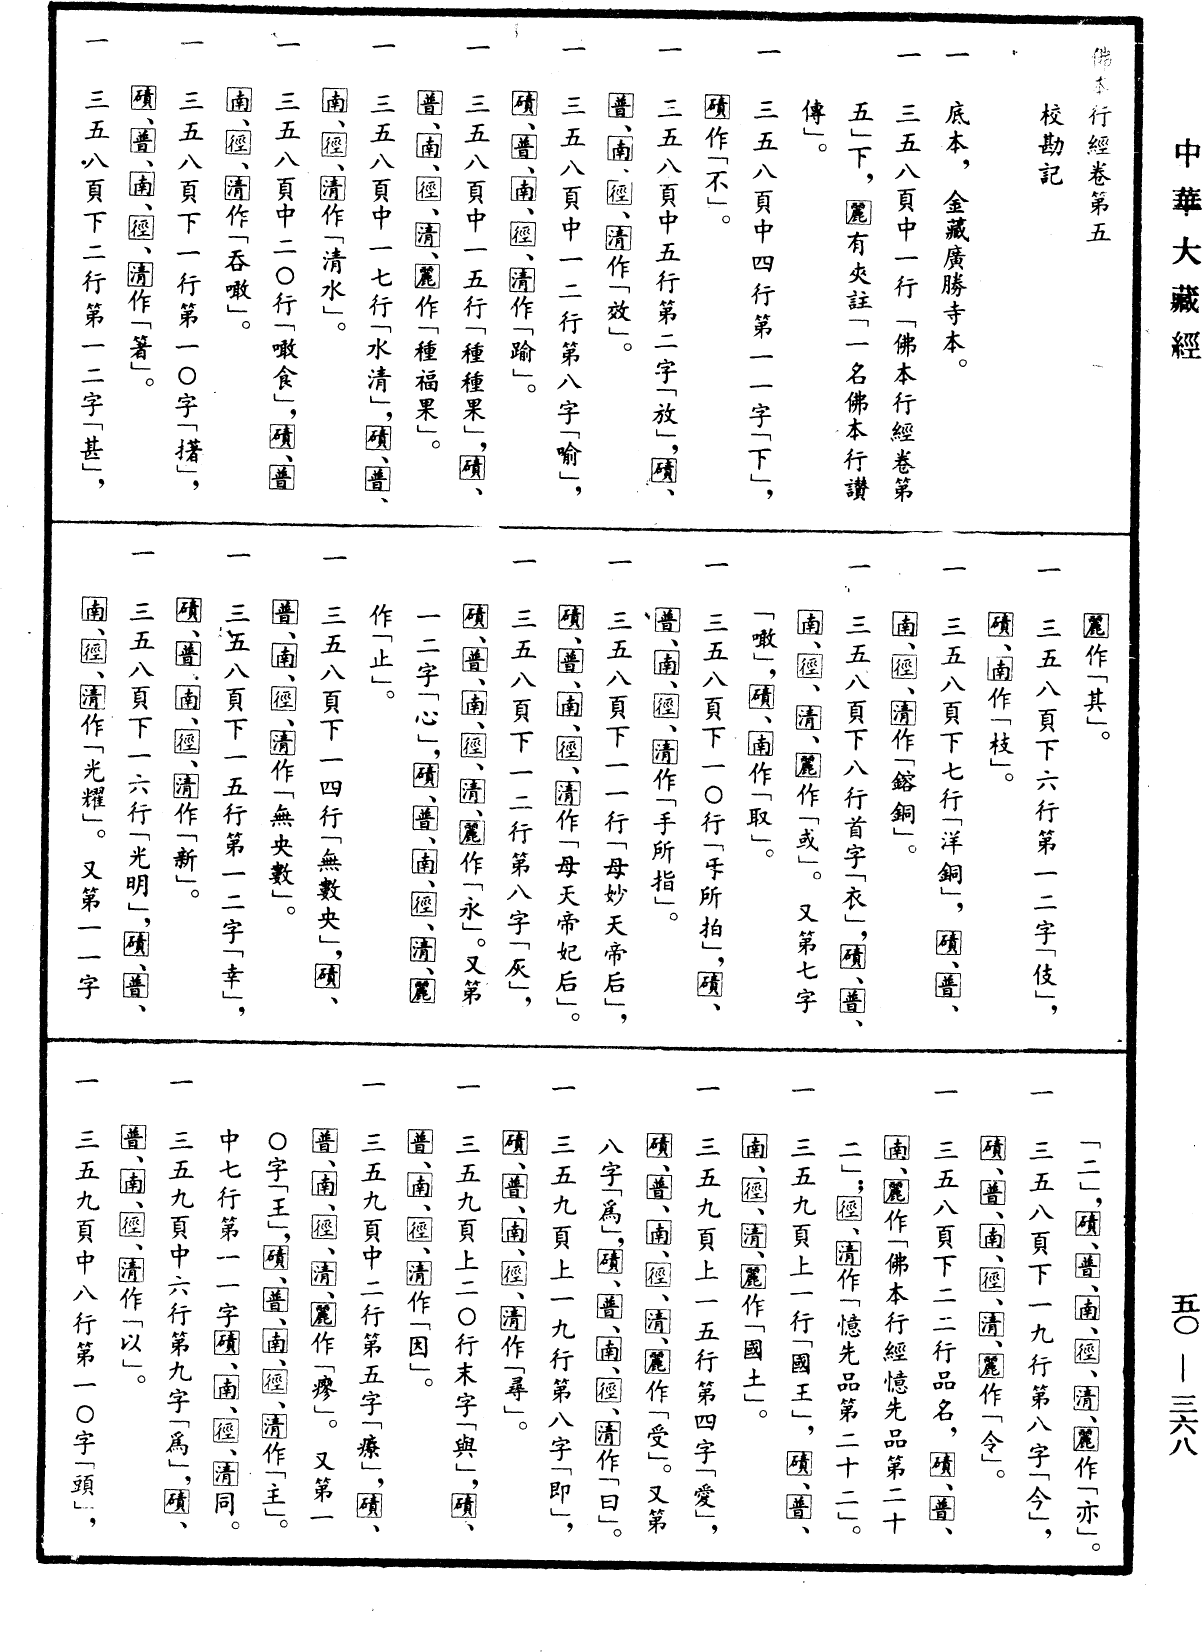 中華大藏經
佛本行經卷第五
校勘記
一 底本，金藏廣勝寺本。
一 三五八頁中一行「佛本行經卷第
五」下，麗有夾註「一名佛本行讚
傳」。
一 三五八頁中四行第一一字「下」，
磧作「不」。
一 三五八頁中五行第二字「放」，磧、
普、南、徑、清作「效」。
一 三五八頁中一二行第八字「喻」，
磧、普、南、徑、清作「踰」。
一 三五八頁中一五行「種種果」，磧、
普、南、徑、清、麗作「種福果」。
一 三五八頁中一七行「水清」，磧、普、
南、徑、清作「清水」。
一 三五八頁中二〇行「噉食」，磧、普
南、徑、清作「吞噉」。
一 三五八頁下一行第一〇字「撯」，
磧、普、南、徑、清作「箸」。
一 三五八頁下二行第一二字「甚」，
麗作「其」。
一 三五八頁下六行第一二字「伎」，
磧、南作「枝」。
一 三五八頁下七行「洋銅」，磧、普、
南、徑、清作「鎔銅」。
一 三五八頁下八行首字「衣」，磧、普、
南、徑、清、麗作「或」。又第七字
「噉」，磧、南作「取」。
一 三五八頁下一〇行「手所拍」，磧、
普、南、徑、清作「手所指」。
一 三五八頁下一一行「母妙天帝后」，
磧、普、南、徑、清作「母天帝妃后」。
一 三五八頁下一二行第八字「灰」，
磧、普、南、徑、清、麗作「永」。又第
一二字「心」，磧、普、南、徑、清、麗
作「止」。
一 三五八頁下一四行「無數央」，磧、
普、南、徑、清作「無央數」。
一 三五八頁下一五行第一二字「幸」，
磧、普、南、徑、清作「新」。
一 三五八頁下一六行「光明」，磧、普、
南、徑、清作「光耀」。又第一一字
「二」，磧、普、南、徑、清、麗作「亦」。
一 三五八頁下一九行第八字「今」，
磧、普、南、徑、清、麗作「令」。
一 三五八頁下二二行品名，磧、普、
南、麗作「佛本行經憶先品第二十
二」；徑、清作「憶先品第二十二」。
一 三五九頁上一行「國王」，磧、普、
南、徑、清、麗作「國土」。
一 三五九頁上一五行第四字「愛」，
磧、普、南、徑、清、麗作「受」。又第
八字「爲」，磧、普、南、徑、清作「曰」。
一 三五九頁上一九行第八字「即」，
磧、普、南、徑、清作「尋」。
一 三五九頁上二〇行末字「與」，磧、
普、南、徑、清作「因」。
一 三五九頁中二行第五字「療」，磧、
普、南、徑、清、麗作「瘳」。又第一
〇字「王」，磧、普、南、徑、清作「主」。
中七行第一一字磧、南、徑、清同。
一 三五九頁中六行第九字「爲」，磧、
普、南、徑、清作「以」。
一 三五九頁中八行第一〇字「頭」，
五〇—三六八